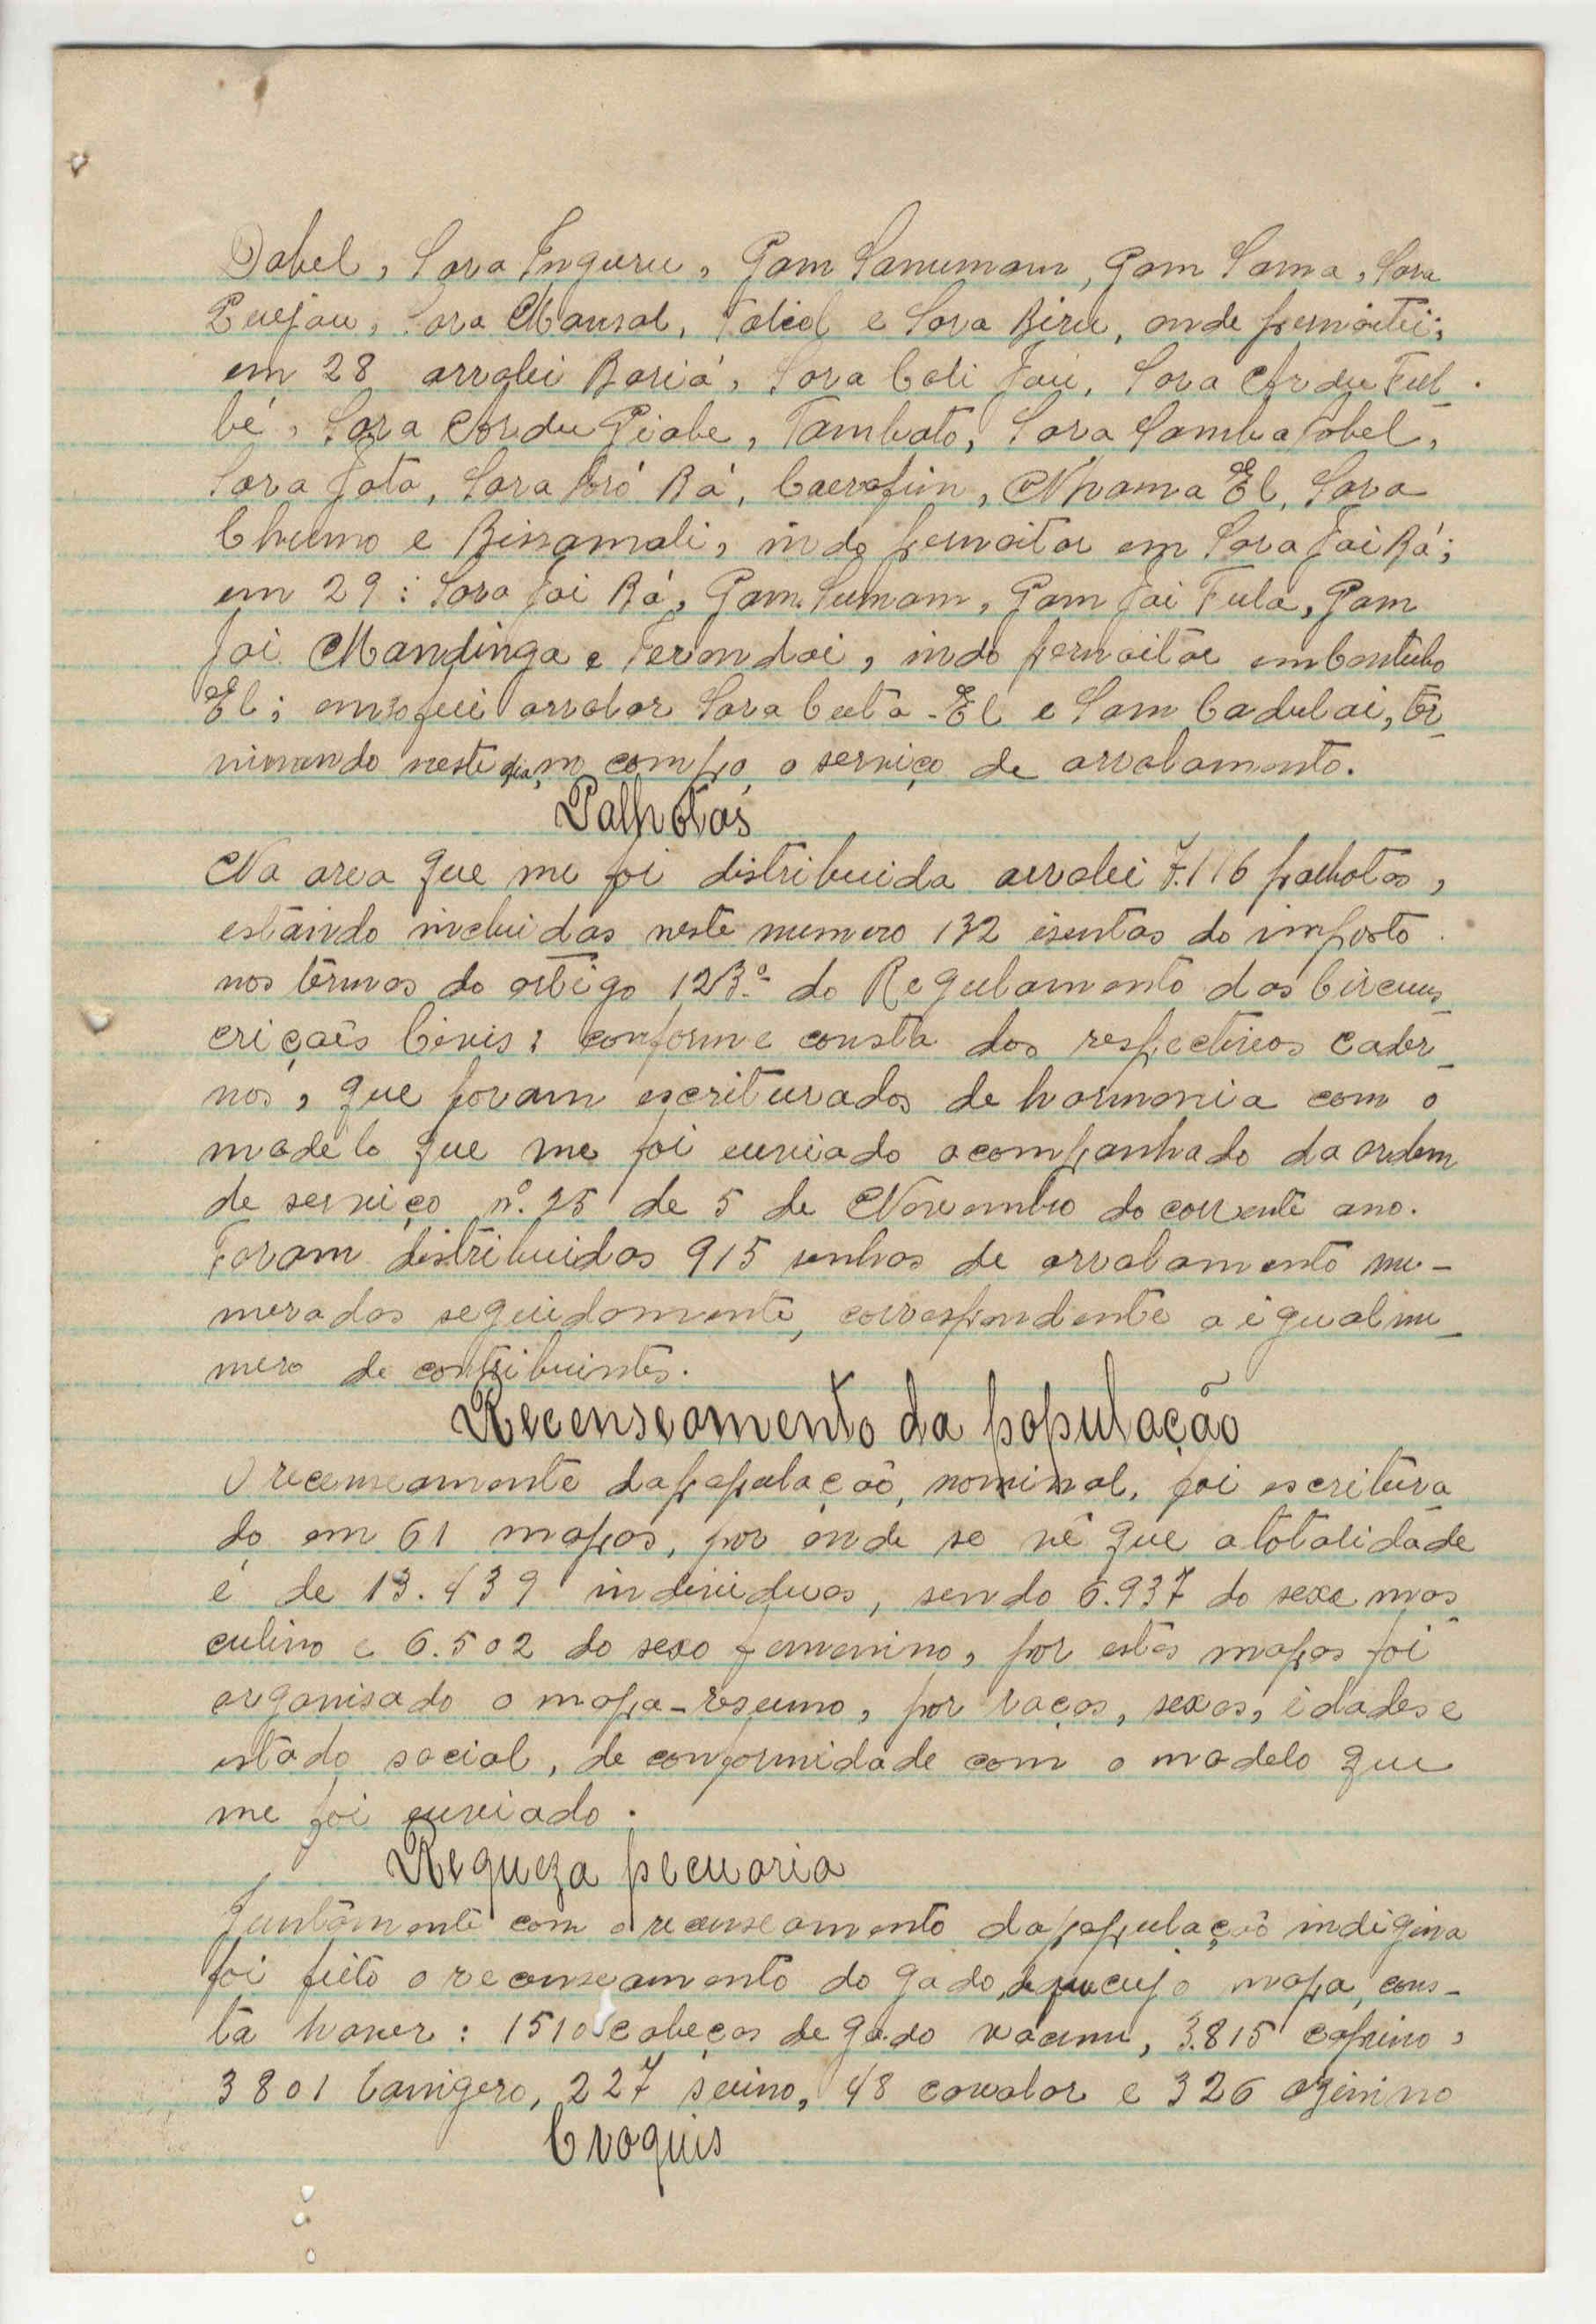 Dabel, Sara Inguru, Gam Sanumam, Gam Sama, Sara
Puejau, Sara Mansal, Talicol e Sara Biru, onde pernoitei;
em 28 arrolei Bariá, Sara Coli Jau, Sara Ardu Ful-
bé, Sara Ardu Piabe, Tambato, Sara Samba Jobel,
Sara Jata, Sara Boró Bá, Caerafim, Nhama El, Sara
Chumo e Bissamali, indo pernoitar em Sara Jai Bá;
em 29: Sara Jai Bá, Gam Sumam, Gam Jai Fula, Gam
Jai Mandinga e Ferandai, indo pernoitar em Contubo
El; em 30 fui arrolar Sara Cuta-El e Sam Cadulai, ter-
minando neste dia, no campo, o serviço de arrolamento.
Palhotas
Na area que me foi distribuida arrolei 7.116 palhotas,
estando incluidas neste numero 132 isentas do imposto
nos têrmos do artigo 123.º do Regulamento das Circuns-
criçoês Civis: conforme consta dos respectivos cader-
nos, que foram escriturados de harmonia com o
modêlo que me foi enviado acompanhado da ordem
de serviço nº. 25 de 5 de Novembro do corrente ano.
Foram distribuidas 915 senhas de arrolamento nu-
meradas seguidamente, correspondente a igual nu-
mero de contribuintes.
Recenseamento da população
O recenseamento da população, nominal, foi escritura-
do em 61 mapas, por onde se vê que a totalidade
é de 13.439 individuos, sendo 6.937 do sexo mas-
culino e 6.502 do sexo femenino, por estes mapas foi
organisado o mapa-resumo, por raças, sexos, idades e
estado social, de conformidade com o modelo que
me foi enviado.
Requeza pecuaria
Juntamente com o recenseamento da população indigina
foi feito o recenseamento do gado, de cujo mapa, cons-
ta haver: 1510 cabeças de gado vacum, 3.815 caprino,
3801 lanigero, 227 suino, 48 cavalar e 326 azinino
Croquis